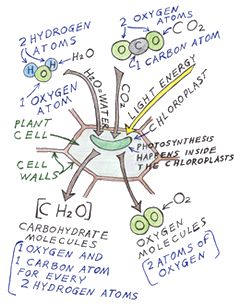 2 HYDROGEN
ATOMS
H H
O
H₂O
1 OXYGEN
ATOM
2 OXYGEN
ATOMS
CO₂
O C O
1 CARBON ATOM
H₂O=WATER
CO₂
LIGHT ENERGY
CHLOROPLAST
PLANT
CELL
CELL
WALLS
PHOTOSYNTHESIS
HAPPENS INSIDE
THE CHLOROPLASTS
[CH₂O]
CARBOHYDRATE
MOLECULES
1 OXYGEN AND
1 CARBON ATOM
FOR EVERY
2 HYDROGEN ATOMS
O O
O₂
OXYGEN
MOLECULES
(2 ATOMS OF
OXYGEN)